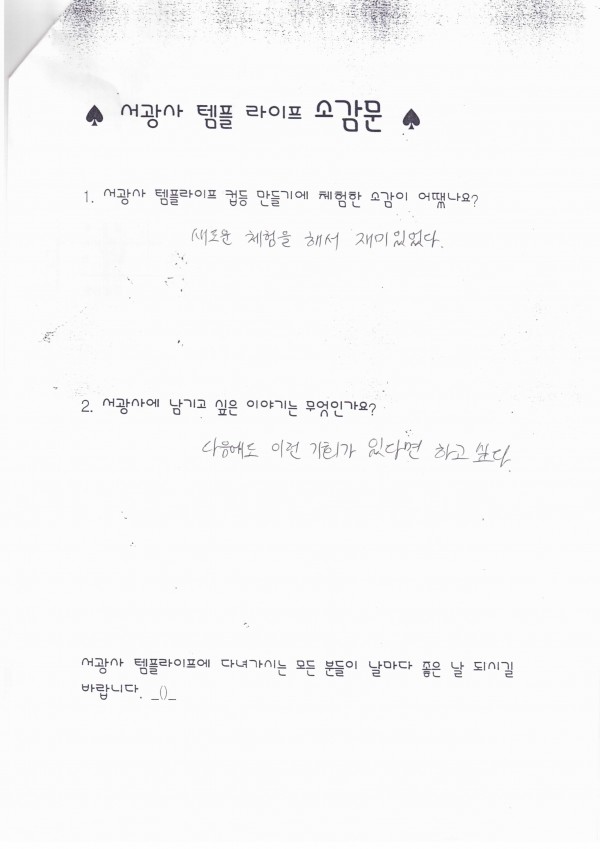 ♠ 서광사 템플 라이프 소감문 ♠
1. 서광사 템플라이프 컵등 만들기에 체험한 소감이 어땠나요?
새로운 체험을 해서 재미있었다.
2. 서광사에 남기고 싶은 이야기는 무엇인가요?
다음에도 이런 기회가 있다면 하고 싶다.
서광사 템플라이프에 다녀가시는 모든 분들이 날마다 좋은 날 되시길
바랍니다. _()_